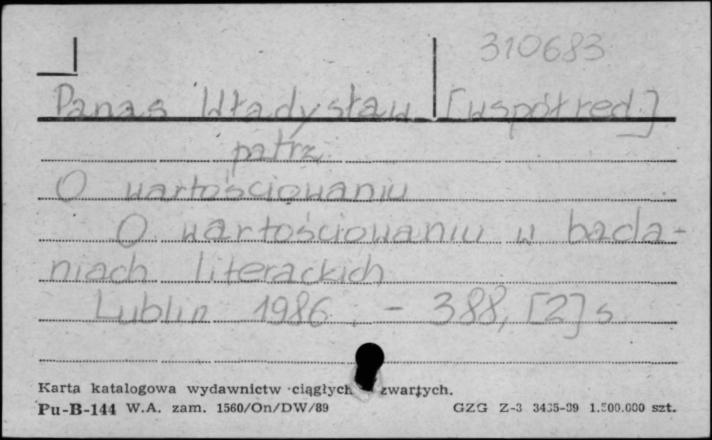 310683
Panas Władysław [współred.]
patrz
O wartościowaniu
O wartościowaniu w bada-
niach literackich
Lublin 1986. - 388, [2] s.
Karta katalogowa wydawnictw ciągłych zwartych.
Pu-B-144 W.A. zam. 1560/On/DW/89 GZG Z-3 1.500.000 szt.